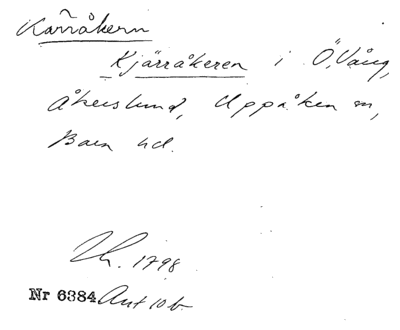 Kärråkern
Kjärråkeren i Ö. Vång,
Åkerslund, Uppåkra sn,
Bara hd.
Lh. 1798
Nr 6384 Ant 10 b